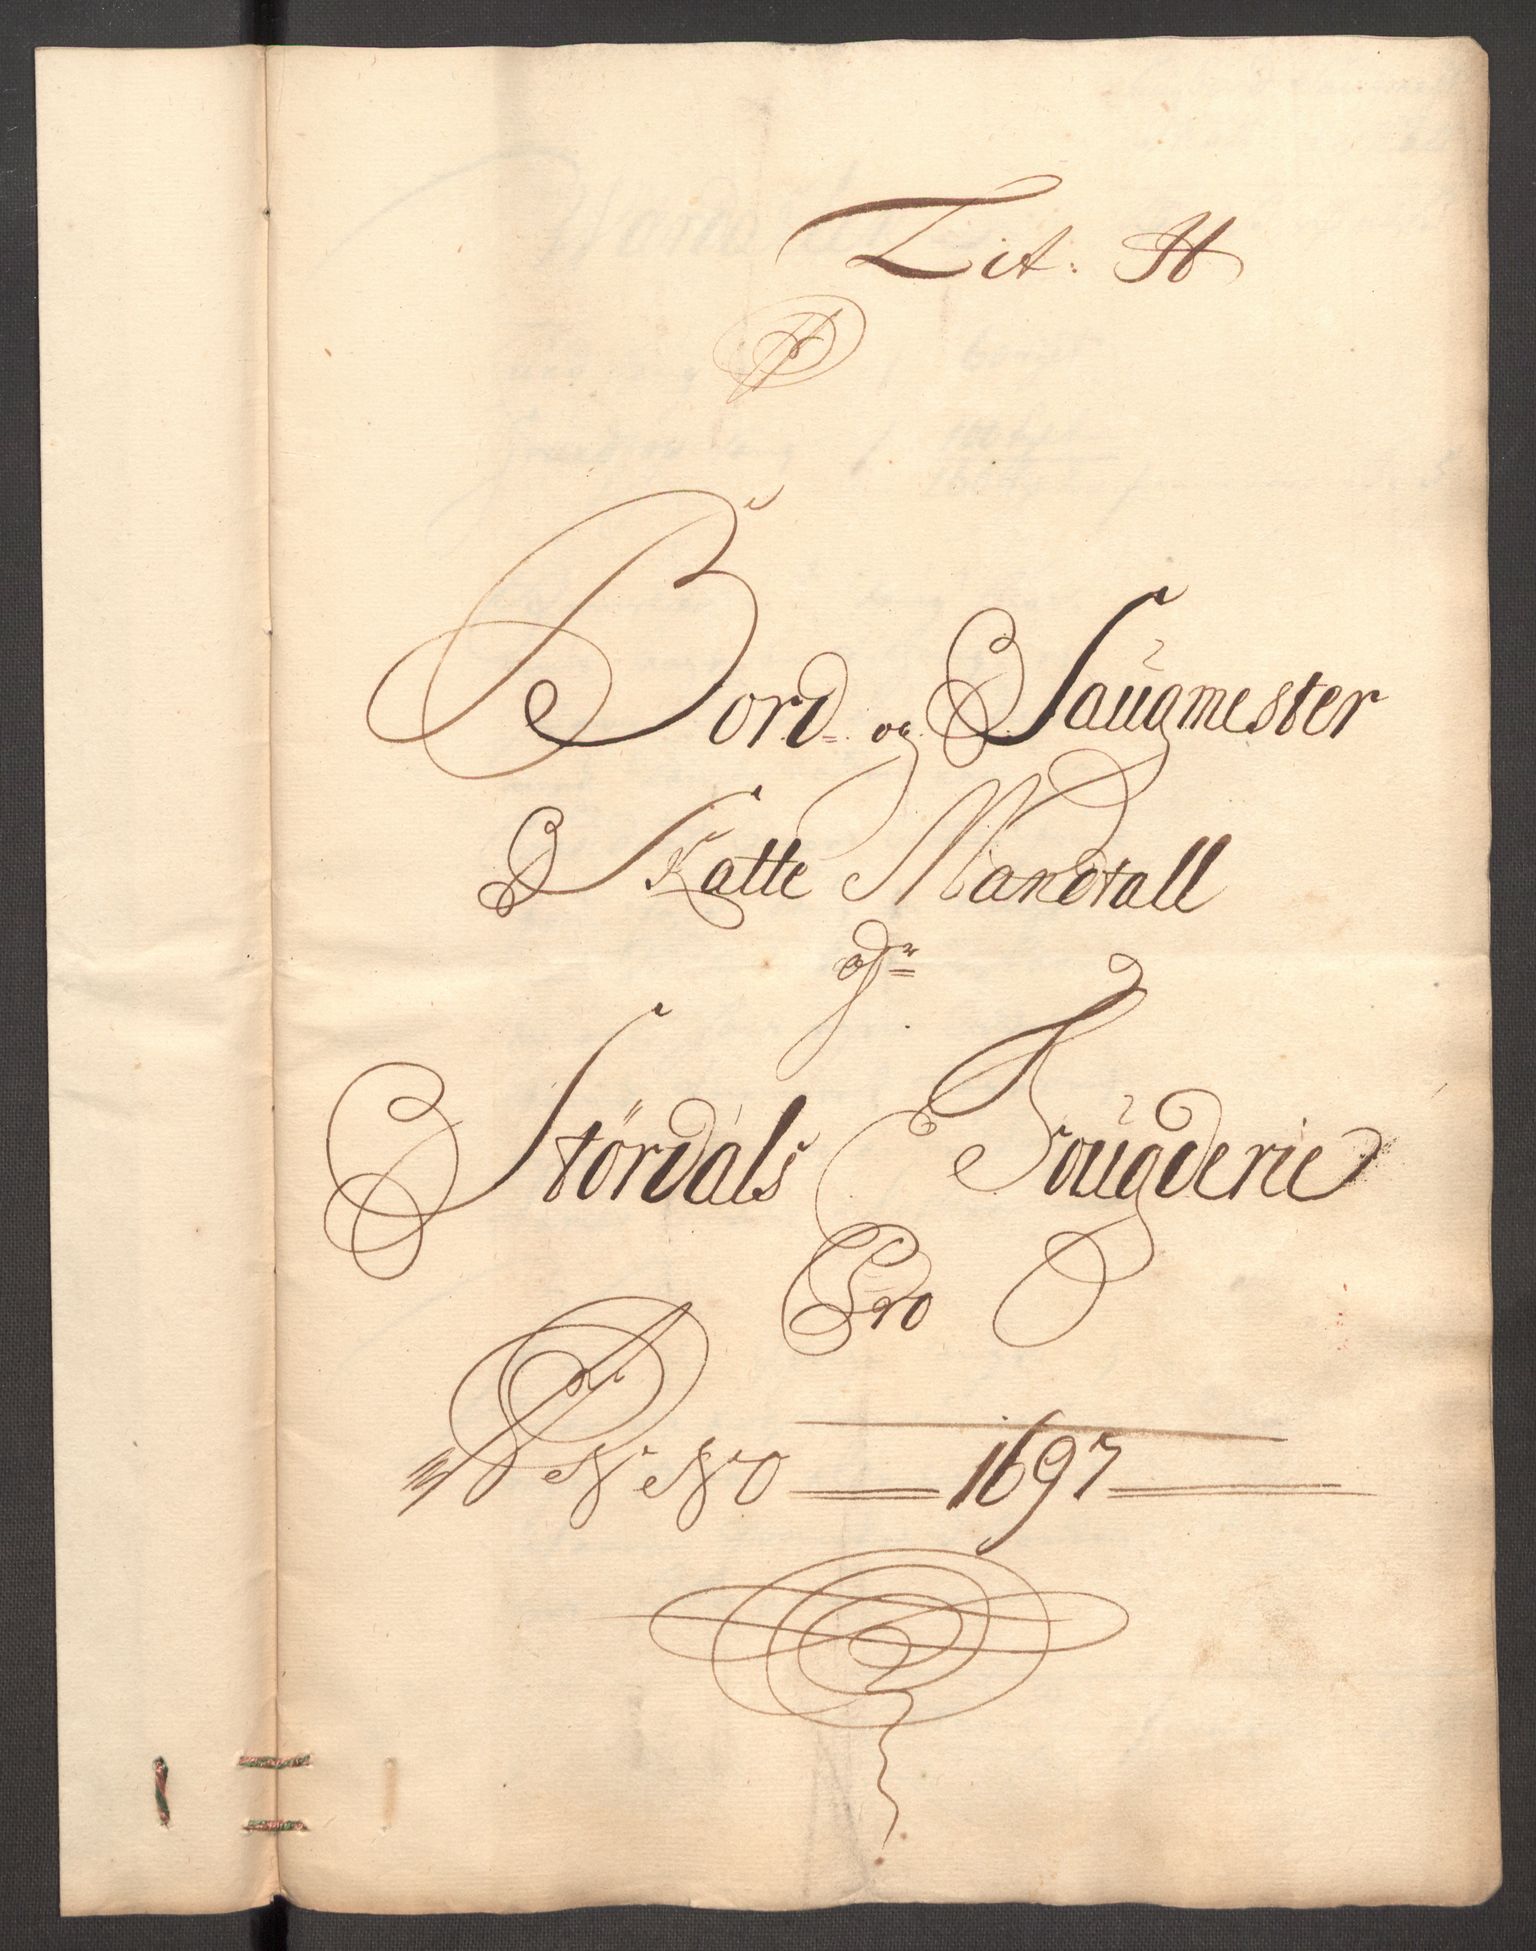 Lit. H
Bord- og Saugmester
Skatte Mandtall
Stördåls Fougderie
Pro
ANNO 1697